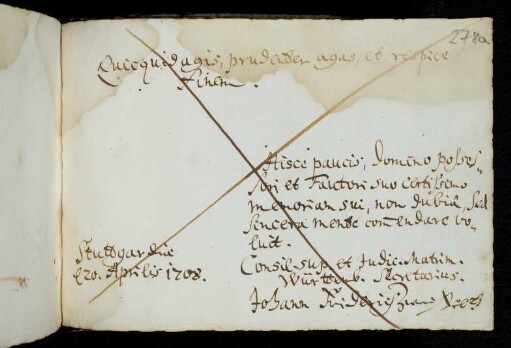 278a
Quicquid agis, prudenter agas, et respice
finem.
Hisce paucis, Domino posses-
sori et Fautori suo certissimo
memoriam sui, non dubia, sed
sincera mente com̄endare vo-
luit.
Stuttgardiae
d 20. Aprilis 1708.
Consil. sup. et Judic. Matrim.
Würtemb. Secretarius.
Johann Friderich